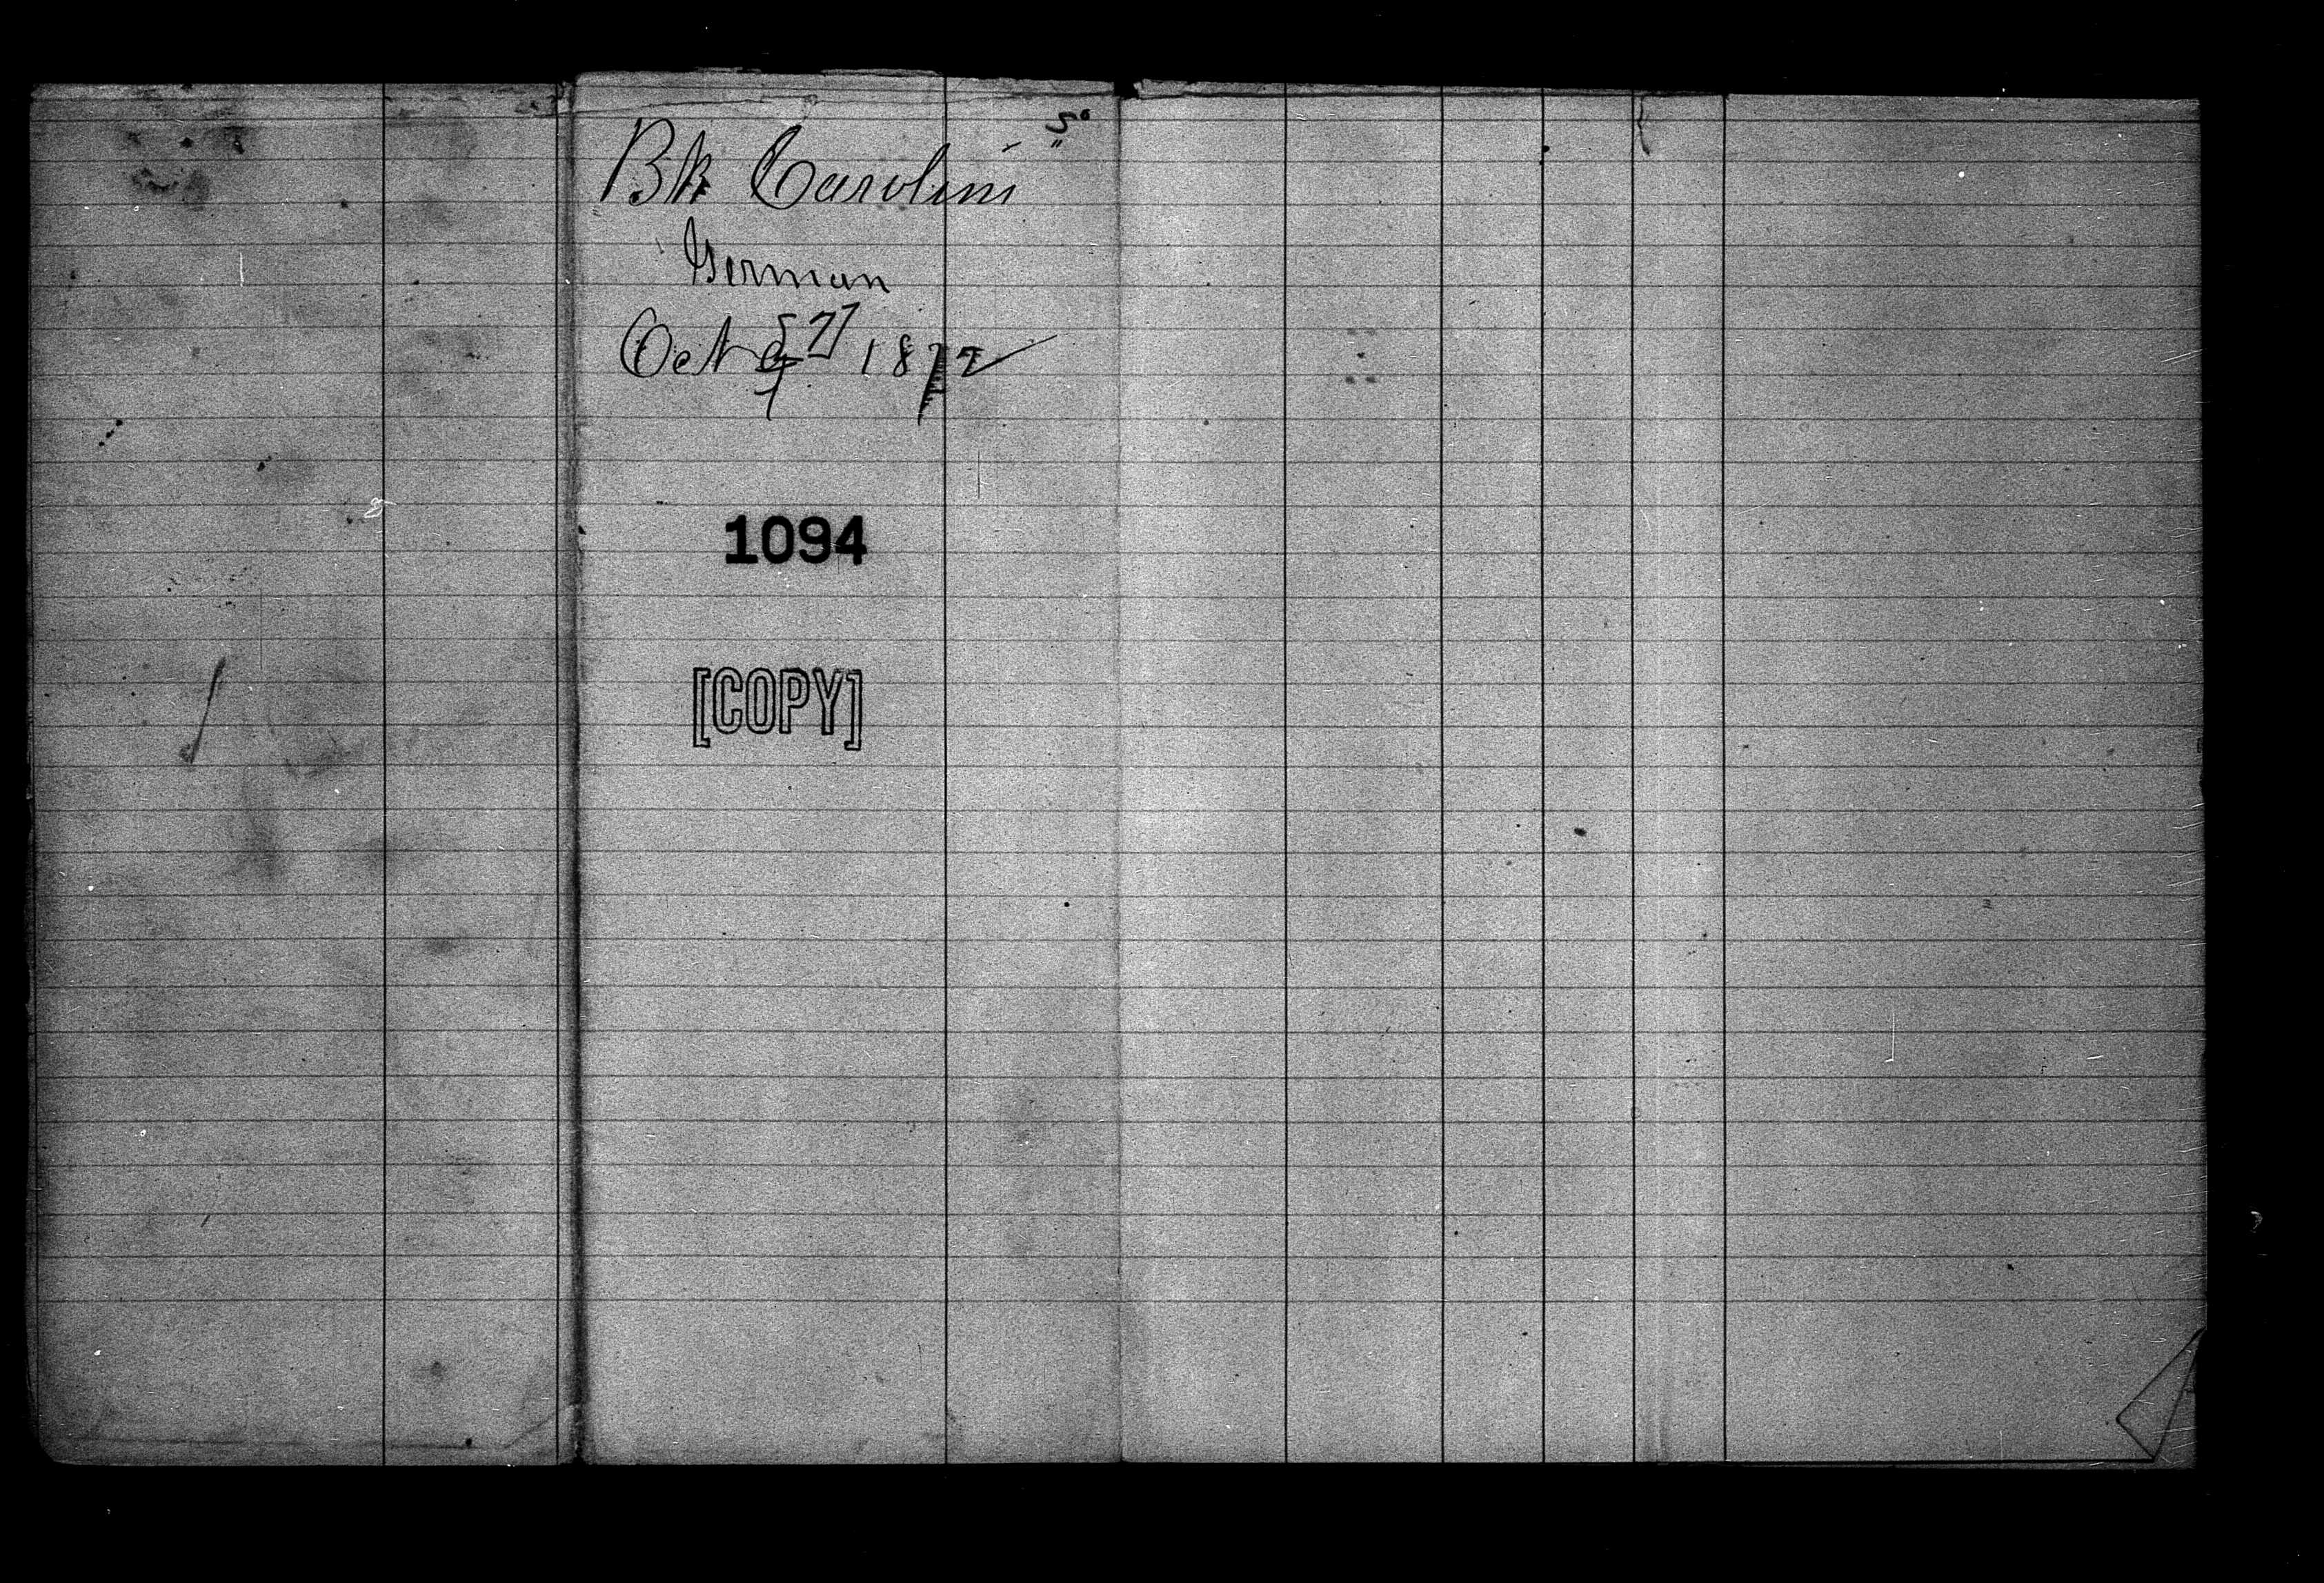 5"
Bk Carolini
German
Oct 1872
1094
[COPY]